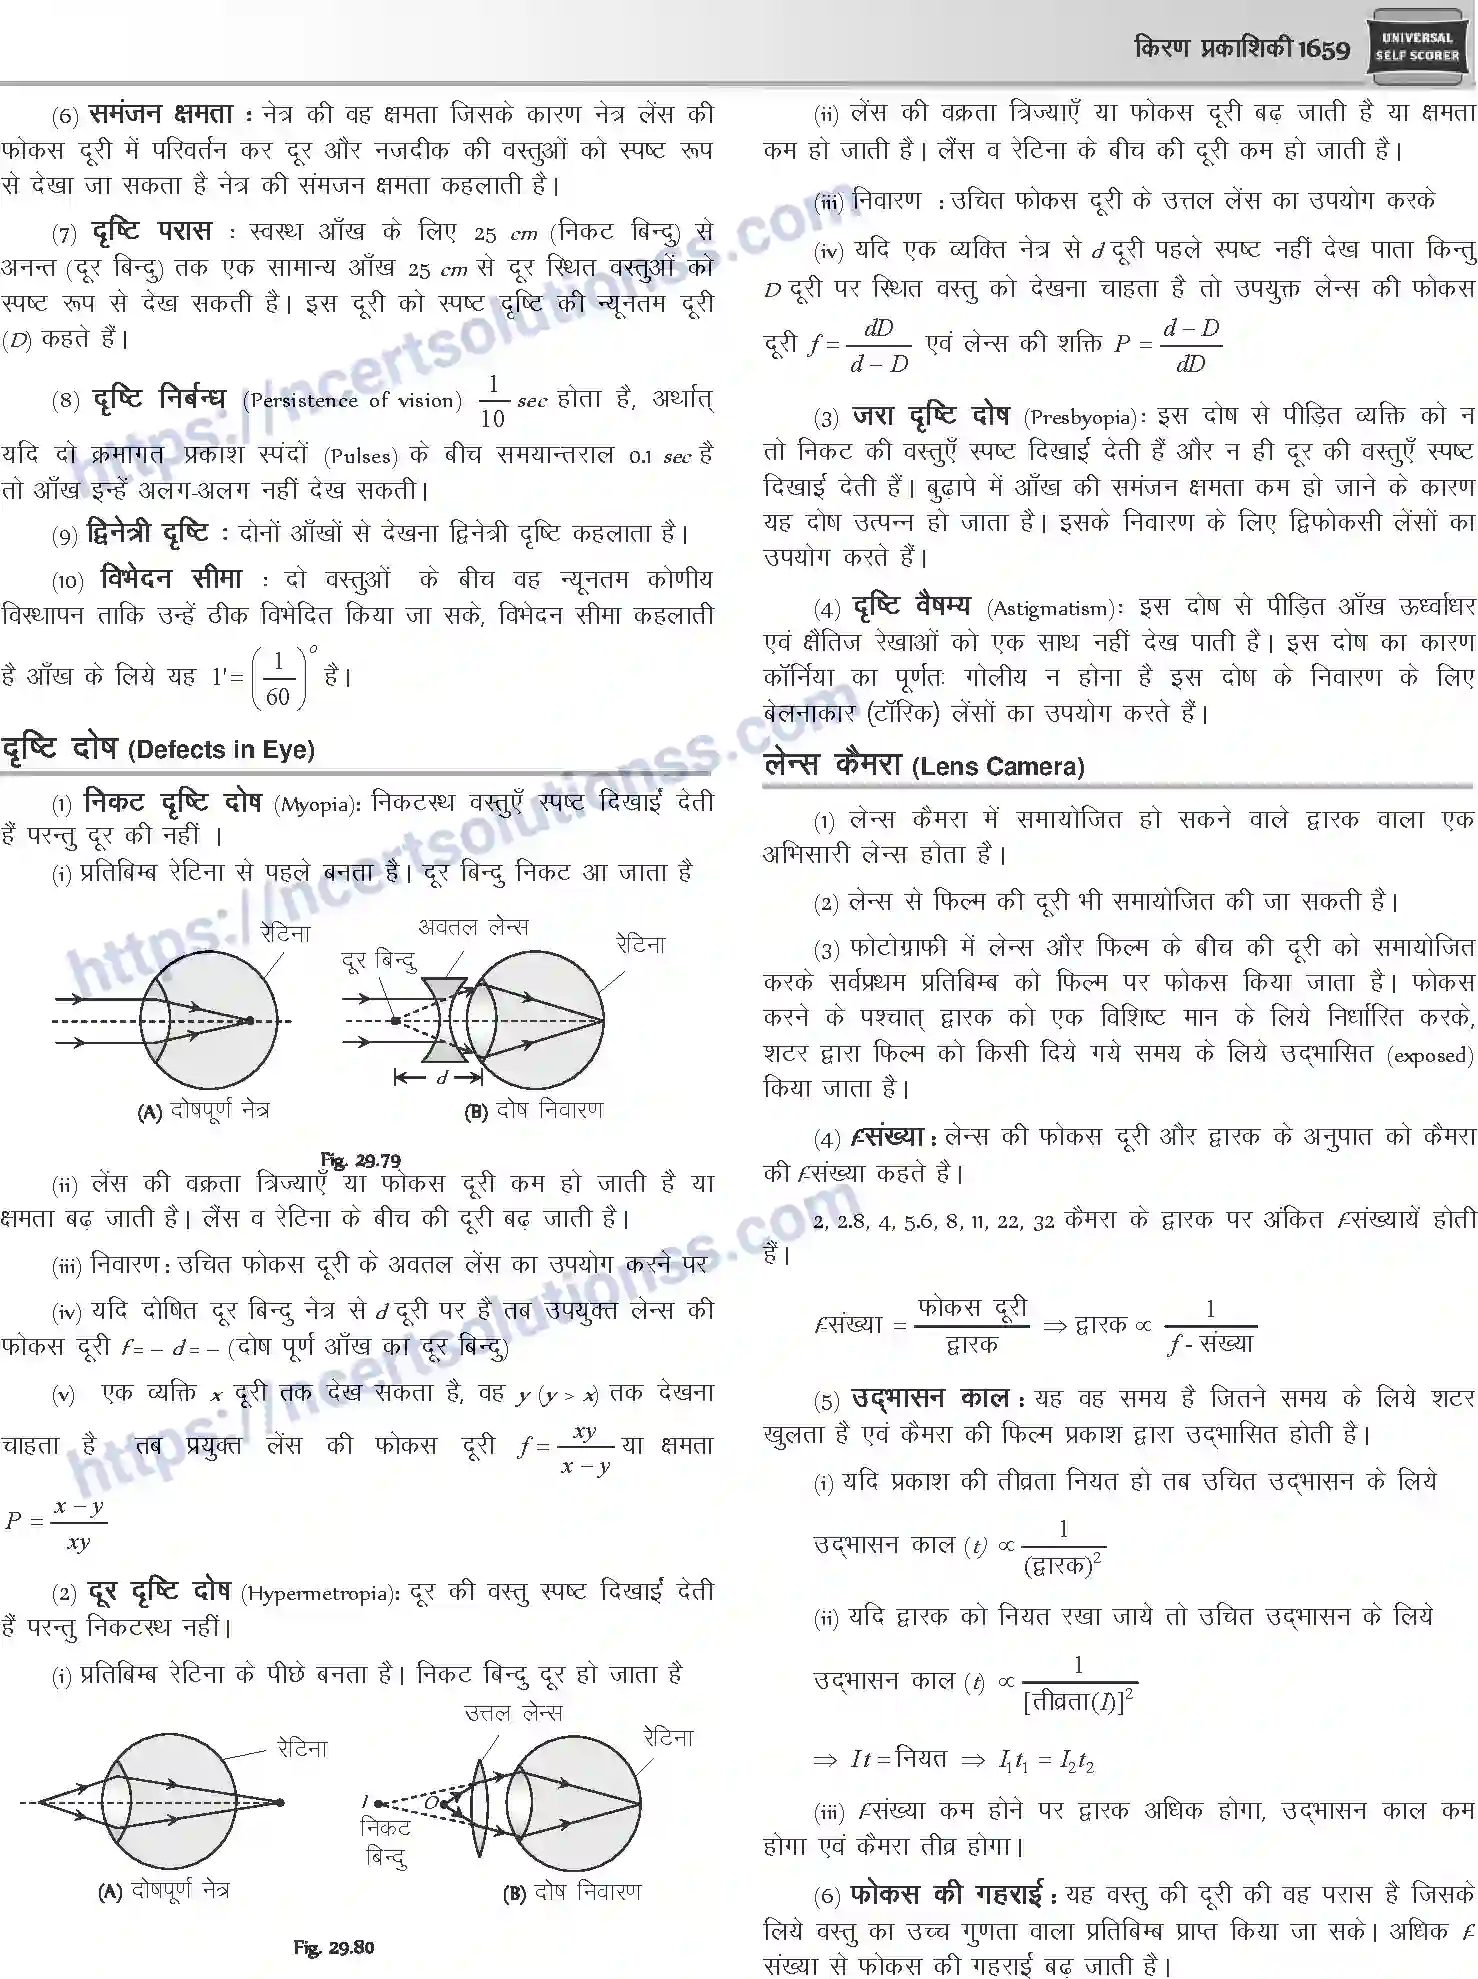 किरण प्रकाशिकी 1659
UNIVERSAL
SELF SCORER
(6) समंजन क्षमता : नेत्र की वह क्षमता जिसके कारण नेत्र लेंस की
फोकस दूरी में परिवर्तन कर दूर और नजदीक की वस्तुओं को स्पष्ट रूप
से देखा जा सकता है नेत्र की संमजन क्षमता कहलाती है।
(7) दृष्टि परास : स्वस्थ आँख के लिए 25 cm (निकट बिन्दु) से
अनन्त (दूर बिन्दु) तक एक सामान्य आँख 25 cm से दूर स्थित वस्तुओं को
स्पष्ट रूप से देख सकती है। इस दूरी को स्पष्ट दृष्टि की न्यूनतम दूरी
(D) कहते हैं।
(8) दृष्टि निर्बन्ध (Persistence of vision) 1/10 sec होता है, अर्थात्
यदि दो क्रमागत प्रकाश स्पंदों (Pulses) के बीच समयान्तराल 0.1 sec है
तो आँख इन्हें अलग-अलग नहीं देख सकती।
(9) द्विनेत्री दृष्टि : दोनों आँखों से देखना द्विनेत्री दृष्टि कहलाता है।
(10) विभेदन सीमा : दो वस्तुओं के बीच वह न्यूनतम कोणीय
विस्थापन ताकि उन्हें ठीक विभेदित किया जा सके, विभेदन सीमा कहलाती
है आँख के लिये यह 1' = (1/60)° है।
दृष्टि दोष (Defects in Eye)
(1) निकट दृष्टि दोष (Myopia): निकटस्थ वस्तुएँ स्पष्ट दिखाईं देती
हैं परन्तु दूर की नहीं ।
(i) प्रतिबिम्ब रेटिना से पहले बनता है। दूर बिन्दु निकट आ जाता है
रेटिना
अवतल लेन्स
दूर बिन्दु
रेटिना
d
(A) दोषपूर्ण नेत्र
(B) दोष निवारण
Fig. 29.79
(ii) लेंस की वक्रता त्रिज्याएँ या फोकस दूरी कम हो जाती है या
क्षमता बढ़ जाती है। लैंस व रेटिना के बीच की दूरी बढ़ जाती है।
(iii) निवारण : उचित फोकस दूरी के अवतल लेंस का उपयोग करने पर
(iv) यदि दोषित दूर बिन्दु नेत्र से d दूरी पर है तब उपयुक्त लेन्स की
फोकस दूरी f = – d = – (दोष पूर्ण आँख का दूर बिन्दु)
(v) एक व्यक्ति x दूरी तक देख सकता है, वह y (y > x) तक देखना
चाहता है तब प्रयुक्त लेंस की फोकस दूरी f = xy/(x – y) या क्षमता
P = (x – y)/xy
(2) दूर दृष्टि दोष (Hypermetropia): दूर की वस्तु स्पष्ट दिखाईं देती
हैं परन्तु निकटस्थ नहीं।
(i) प्रतिबिम्ब रेटिना के पीछे बनता है। निकट बिन्दु दूर हो जाता है
रेटिना
उत्तल लेन्स
रेटिना
I
O
निकट
बिन्दु
(A) दोषपूर्ण नेत्र
(B) दोष निवारण
Fig. 29.80
(ii) लेंस की वक्रता त्रिज्याएँ या फोकस दूरी बढ़ जाती है या क्षमता
कम हो जाती है। लैंस व रेटिना के बीच की दूरी कम हो जाती है।
(iii) निवारण : उचित फोकस दूरी के उत्तल लेंस का उपयोग करके
(iv) यदि एक व्यक्ति नेत्र से d दूरी पहले स्पष्ट नहीं देख पाता किन्तु
D दूरी पर स्थित वस्तु को देखना चाहता है तो उपयुक्त लेन्स की फोकस
दूरी f = dD/(d – D) एवं लेन्स की शक्ति P = (d – D)/dD
(3) जरा दृष्टि दोष (Presbyopia): इस दोष से पीड़ित व्यक्ति को न
तो निकट की वस्तुएँ स्पष्ट दिखाई देती हैं और न ही दूर की वस्तुएँ स्पष्ट
दिखाई देती हैं। बुढ़ापे में आँख की समंजन क्षमता कम हो जाने के कारण
यह दोष उत्पन्न हो जाता है। इसके निवारण के लिए द्विफोकसी लेंसों का
उपयोग करते हैं।
(4) दृष्टि वैषम्य (Astigmatism): इस दोष से पीड़ित आँख ऊर्ध्वाधर
एवं क्षैतिज रेखाओं को एक साथ नहीं देख पाती है। इस दोष का कारण
कॉर्निया का पूर्णतः गोलीय न होना है इस दोष के निवारण के लिए
बेलनाकार (टॉरिक) लेंसों का उपयोग करते हैं।
लेन्स कैमरा (Lens Camera)
(1) लेन्स कैमरा में समायोजित हो सकने वाले द्वारक वाला एक
अभिसारी लेन्स होता है।
(2) लेन्स से फिल्म की दूरी भी समायोजित की जा सकती है।
(3) फोटोग्राफी में लेन्स और फिल्म के बीच की दूरी को समायोजित
करके सर्वप्रथम प्रतिबिम्ब को फिल्म पर फोकस किया जाता है। फोकस
करने के पश्चात् द्वारक को एक विशिष्ट मान के लिये निर्धारित करके,
शटर द्वारा फिल्म को किसी दिये गये समय के लिये उद्भासित (exposed)
किया जाता है।
(4) f-संख्या : लेन्स की फोकस दूरी और द्वारक के अनुपात को कैमरा
की f-संख्या कहते है।
2, 2.8, 4, 5.6, 8, 11, 22, 32 कैमरा के द्वारक पर अंकित f-संख्यायें होती
हैं।
f-संख्या = फोकस दूरी/द्वारक ⇒ द्वारक ∝ 1/(f - संख्या)
(5) उद्भासन काल : यह वह समय है जितने समय के लिये शटर
खुलता है एवं कैमरा की फिल्म प्रकाश द्वारा उद्भासित होती है।
(i) यदि प्रकाश की तीव्रता नियत हो तब उचित उद्भासन के लिये
उद्भासन काल (t) ∝ 1/(द्वारक)²
(ii) यदि द्वारक को नियत रखा जाये तो उचित उद्भासन के लिये
उद्भासन काल (t) ∝ 1/[तीव्रता(I)]²
⇒ It = नियत ⇒ I₁t₁ = I₂t₂
(iii) f-संख्या कम होने पर द्वारक अधिक होगा, उद्भासन काल कम
होगा एवं कैमरा तीव्र होगा।
(6) फोकस की गहराई : यह वस्तु की दूरी की वह परास है जिसके
लिये वस्तु का उच्च गुणता वाला प्रतिबिम्ब प्राप्त किया जा सके। अधिक f-
संख्या से फोकस की गहराई बढ़ जाती है।
https://ncertsolutionss.com
https://ncertsolutionss.com
https://ncertsolutionss.com